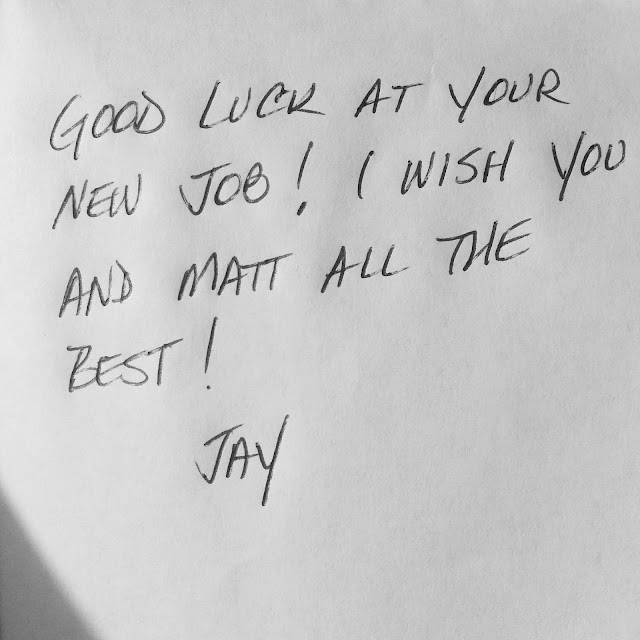 GOOD LUCK AT YOUR
NEW JOB! I WISH YOU
AND MATT ALL THE
BEST!
JAY